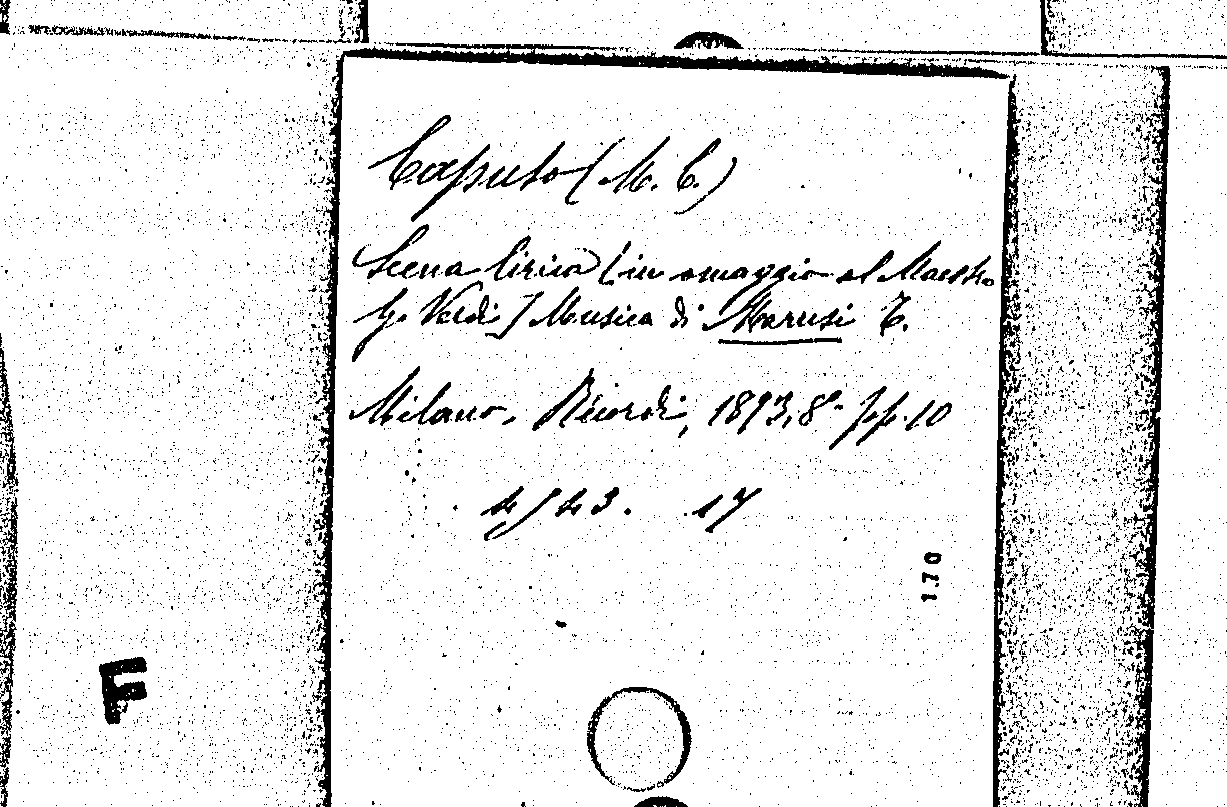 Caputo (M. C.)
Scena lirica [in omaggio al Maestro
G. Verdi] Musica di Marusi E.
Milano, Ricordi, 1893, 8° pp. 10
17
170
F